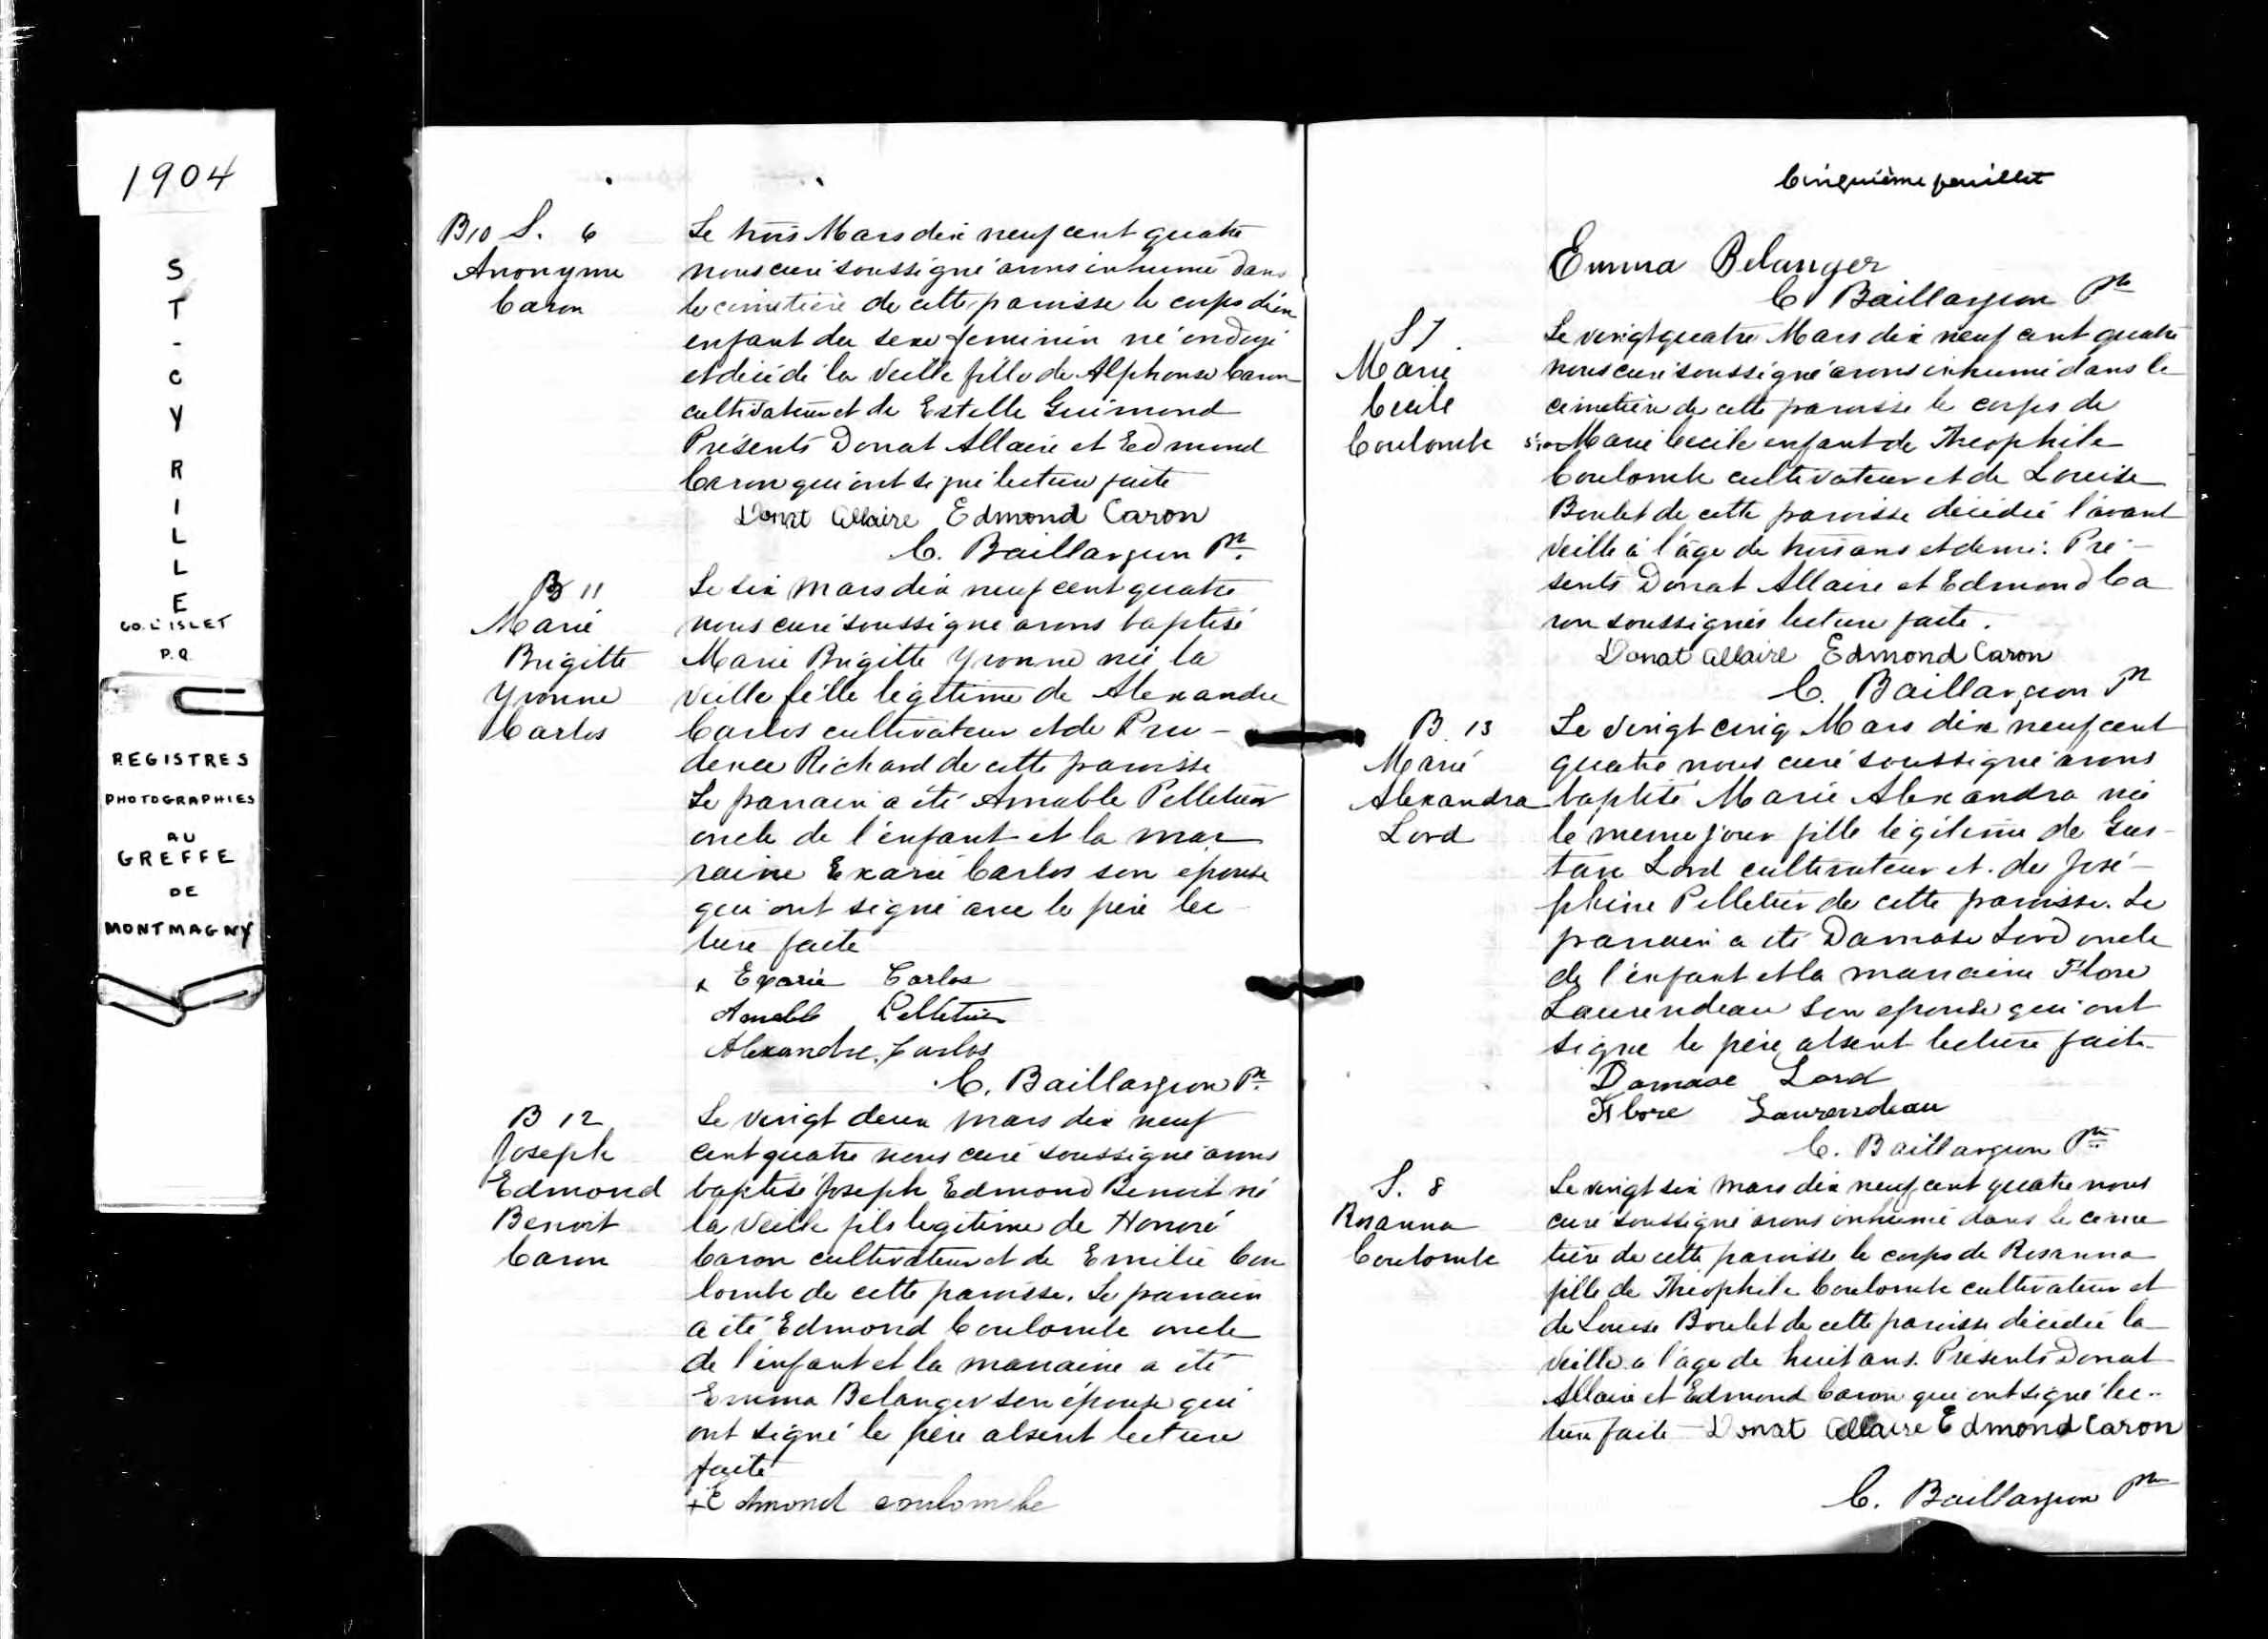 1904
ST-CYRILLE
CO. L'ISLET
P.Q.
REGISTRES
PHOTOGRAPHIES
AU
GREFFE
DE
MONTMAGNY
B10 S. 6
Anonyme
Caron
Le trois Mars dix neuf cent quatre
nous curé soussigné avons inhumé dans
le cimetière de cette paroisse le corps d'un
enfant du sexe feminin né ondoyé
et décédé la veille fille de Alphonse Caron
cultivateur et de Estelle Guimond
Présents Donat Allaire et Edmond
Caron qui ont signé lecture faite
Donat Allaire Edmond Caron
C. Baillargeon Ptr.
B 11
Marie
Brigitte
Yvonne
Carlos
Le six mars dix neuf cent quatre
nous curé soussigné avons baptisé
Marie Brigitte Yvonne née la
veille fille légitime de Alexandre
Carlos cultivateur et de Pru-
dence Richard de cette paroisse
Le parrain a été Amable Pelletier
oncle de l'enfant et la mar
raine Exarie Carlos son epouse
qui ont signé avec le père lec
ture faite
x Exarie Carlos
Amable Pelletier
Alexandre Carlos
C. Baillargeon Ptr.
B 12
Joseph
Edmond
Benoit
Caron
Le vingt deux mars dix neuf
cent quatre nous curé soussigné avons
baptisé Joseph Edmond Benoit né
la veille fils legitime de Honoré
Caron cultivateur et de Emilie Cou
lombe de cette paroisse. Le parrain
a été Edmond Coulombe oncle
de l'enfant et la marraine a été
Emma Belanger son épouse qui
ont signé le père absent lecture
faite
+ Edmond coulombe
Cinquième feuillet
Emma Belanger
C Baillargeon Ptr
S 7.
Marie
Cecile
Coulombe
Le vingt quatre Mars dix neuf cent quatre
nous curé soussigné avons inhumé dans le
cimetière de cette paroisse le corps de
Marie Cecile enfant de Theophile
Coulombe cultivateur et de Louise
Boulet de cette paroisse décédée l'avant
veille à l'âge de trois ans et demi. Pré-
sents Donat Allaire et Edmond Ca
ron soussignés lecture faite.
Donat Allaire Edmond Caron
C. Baillargeon Ptr
B. 13
Marie
Alexandra
Lord
Le vingt cinq Mars dix neuf cent
quatre nous curé soussigné avons
baptisé Marie Alexandra née
le meme jour fille légitime de Gus-
tave Lord cultivateur et de José-
phine Pelletier de cette paroisse. Le
parrain a été Damase Lord oncle
de l'enfant et la marraine Flore
Laurendeau son epouse qui ont
signé le père absent lecture faite.
Damase Lord
Flore Laurendeau
C. Baillargeon Ptr.
S. 8
Rosanna
Coulombe
Le vingt six Mars dix neuf cent quatre nous
curé soussigné avons inhumé dans le cime
tière de cette paroisse le corps de Rosanna
fille de Theophile Coulombe cultivateur et
de Louise Boulet de cette paroisse décédée la
veille à l'age de huit ans. Présents Donat
Allaire et Edmond Caron qui ont signé lec-
ture faite Donat Allaire Edmond Caron
C. Baillargeon Ptr